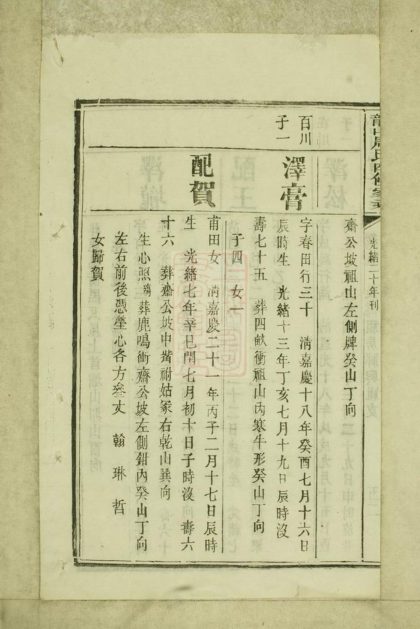 光緒二十年刊
齋公坡祖山左側牌癸山丁向
百川
子一
澤膏
字春田行三十　清嘉慶十八年癸酉七月十六日
辰時生　光緒十三年丁亥七月十九日辰時沒
壽七十五　葬四畝衝祖山內寒牛形癸山丁向
子四　女一
配賀
甫田女　清嘉慶二十一年丙子二月十七日辰時
生　光緒七年辛巳閏七月初十日子時沒　壽六
十六　葬齋公坡中嘴祔姑冢右乾山巽向
生心照　葬鹿鳴衝齋公坡左側鉗內癸山丁向
左右前後憑塋心各方叁丈　翰　琳　哲
女歸賀